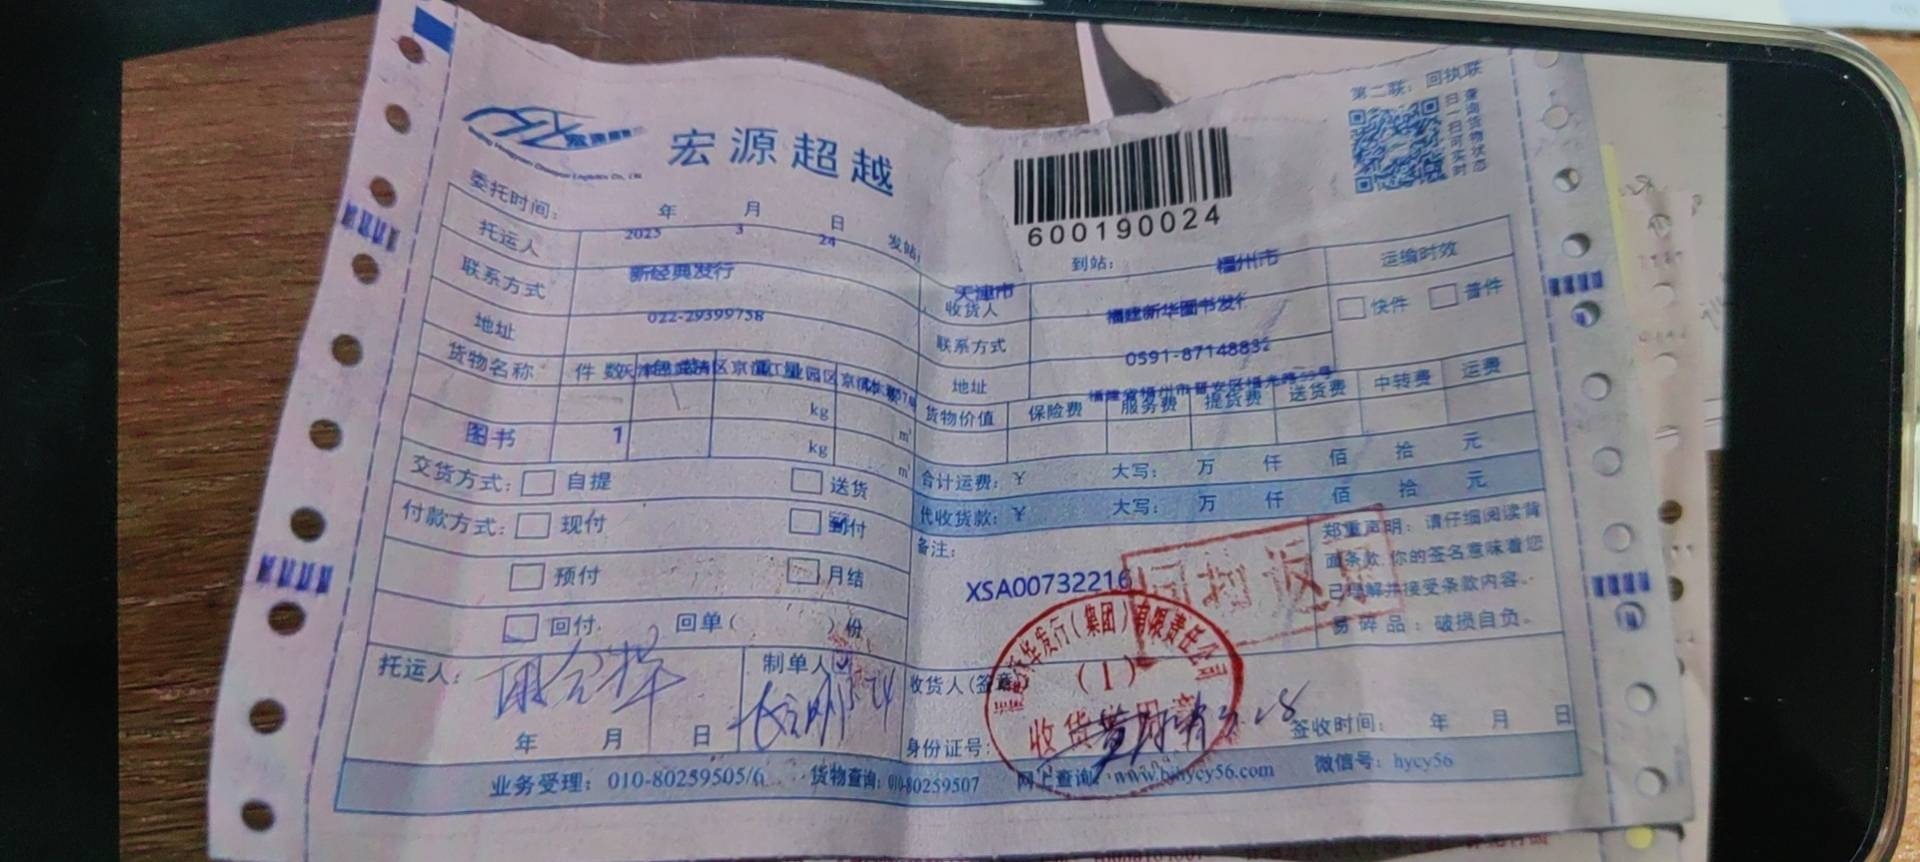 第二联：回执联
扫一扫可实时
查询货物状态
宏源超越
600190024
委托时间： 2025 年 3 月 24 日
发站： 天津市
到站： 福州市
运输时效
快件 普件
托运人 新经典发行
收货人 福建新华图书发行
联系方式 022-29399758
联系方式 0591-87148832
地址
地址
货物名称 件数
kg m³
图书 1 kg m³
货物价值 保险费 服务费 提货费 送货费 中转费 运费
交货方式： 自提 送货
合计运费：￥ 大写： 万 仟 佰 拾 元
付款方式： 现付 到付
代收货款：￥ 大写： 万 仟 佰 拾 元
预付 月结
回付 回单（ ）份
备注：
XSA00732216
郑重声明：请仔细阅读背
面条款.你的签名意味着您
已理解并接受条款内容。
易碎品：破损自负。
托运人：
年 月 日
制单人
收货人(签章)
身份证号：
签收时间： 年 月 日
发行(集团)有限责任公司
(1)
收货专用章
业务受理：010-80259505/6 货物查询：010-80259507 网上查询：www.bjhycy56.com 微信号：hycy56